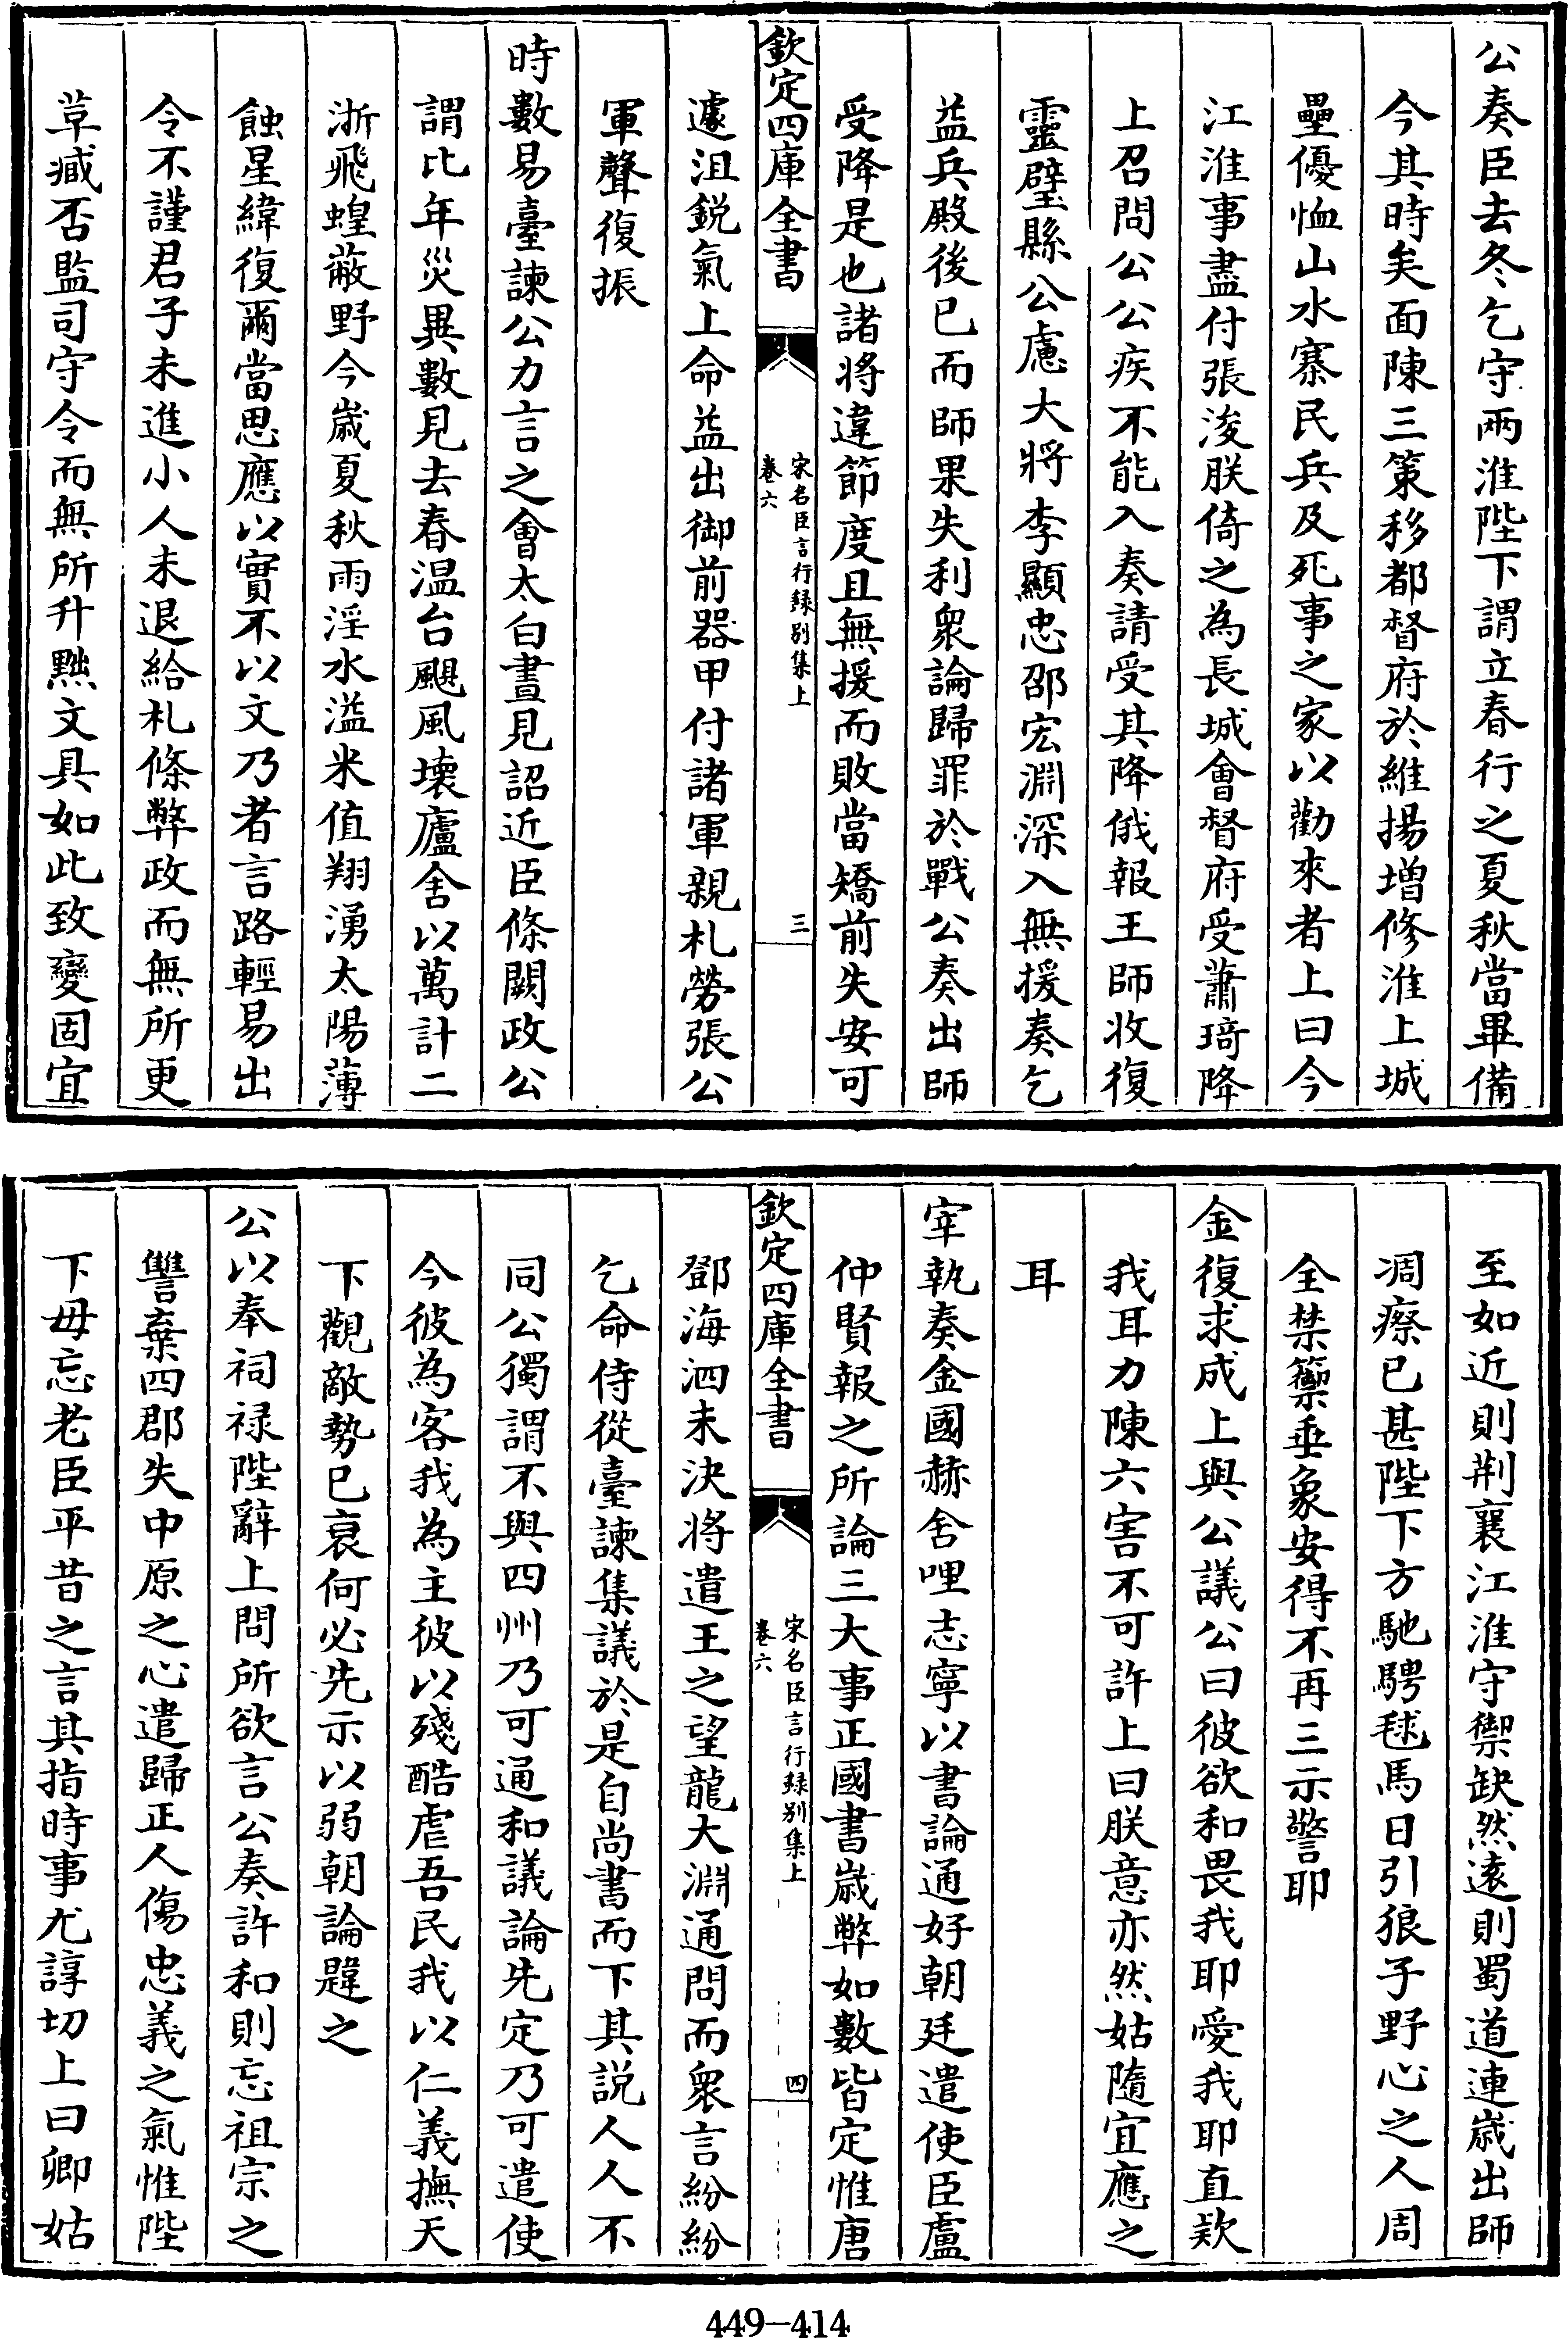 公奏臣去冬乞守兩淮陛下謂立春行之夏秋當畢備
今其時矣面陳三策移都督府於維揚增修淮上城
壘優恤山水寨民兵及死事之家以勸來者上曰今
江淮事盡付張浚朕倚之為長城會督府受蕭琦降
上召問公公疾不能入奏請受其降俄報王師收復
靈璧縣公慮大將李顯忠邵宏淵深入無援奏乞
益兵殿後已而師果失利衆論歸罪於戰公奏出師
受降是也諸將違節度且無援而敗當矯前失安可
欽定四庫全書
宋名臣言行録别集上
卷六
三
遽沮鋭氣上命益出御前器甲付諸軍親札勞張公
軍聲復振
時數易臺諫公力言之會太白晝見詔近臣條闕政公
謂比年災異數見去春温台颶風壞廬舍以萬計二
浙飛蝗蔽野今歲夏秋雨淫水溢米值翔湧太陽薄
蝕星緯復爾當思應以實不以文乃者言路輕易出
令不謹君子未進小人未退給札條弊政而無所更
草臧否監司守令而無所升黜文具如此致變固宜
至如近則荆襄江淮守禦缺然逺則蜀道連歲出師
凋瘵已甚陛下方馳騁毬馬日引狼子野心之人周
全禁籞垂象安得不再三示警耶
金復求成上與公議公曰彼欲和畏我耶愛我耶直欵
我耳力陳六害不可許上曰朕意亦然姑隨宜應之
耳
宰執奏金國赫舍哩志寧以書論通好朝廷遣使臣盧
仲賢報之所論三大事正國書歲弊如數皆定惟唐
欽定四庫全書
宋名臣言行録别集上
卷六
四
鄧海泗未決將遣王之望龍大淵通問而衆言紛紛
乞命侍從臺諫集議於是自尚書而下其説人人不
同公獨謂不與四州乃可通和議論先定乃可遣使
今彼為客我為主彼以殘酷虐吾民我以仁義撫天
下觀敵勢已衰何必先示以弱朝論韙之
公以奉祠禄陛辭上問所欲言公奏許和則忘祖宗之
讐棄四郡失中原之心遣歸正人傷忠義之氣惟陛
下毋忘老臣平昔之言其指時事尤諄切上曰卿姑
449-414